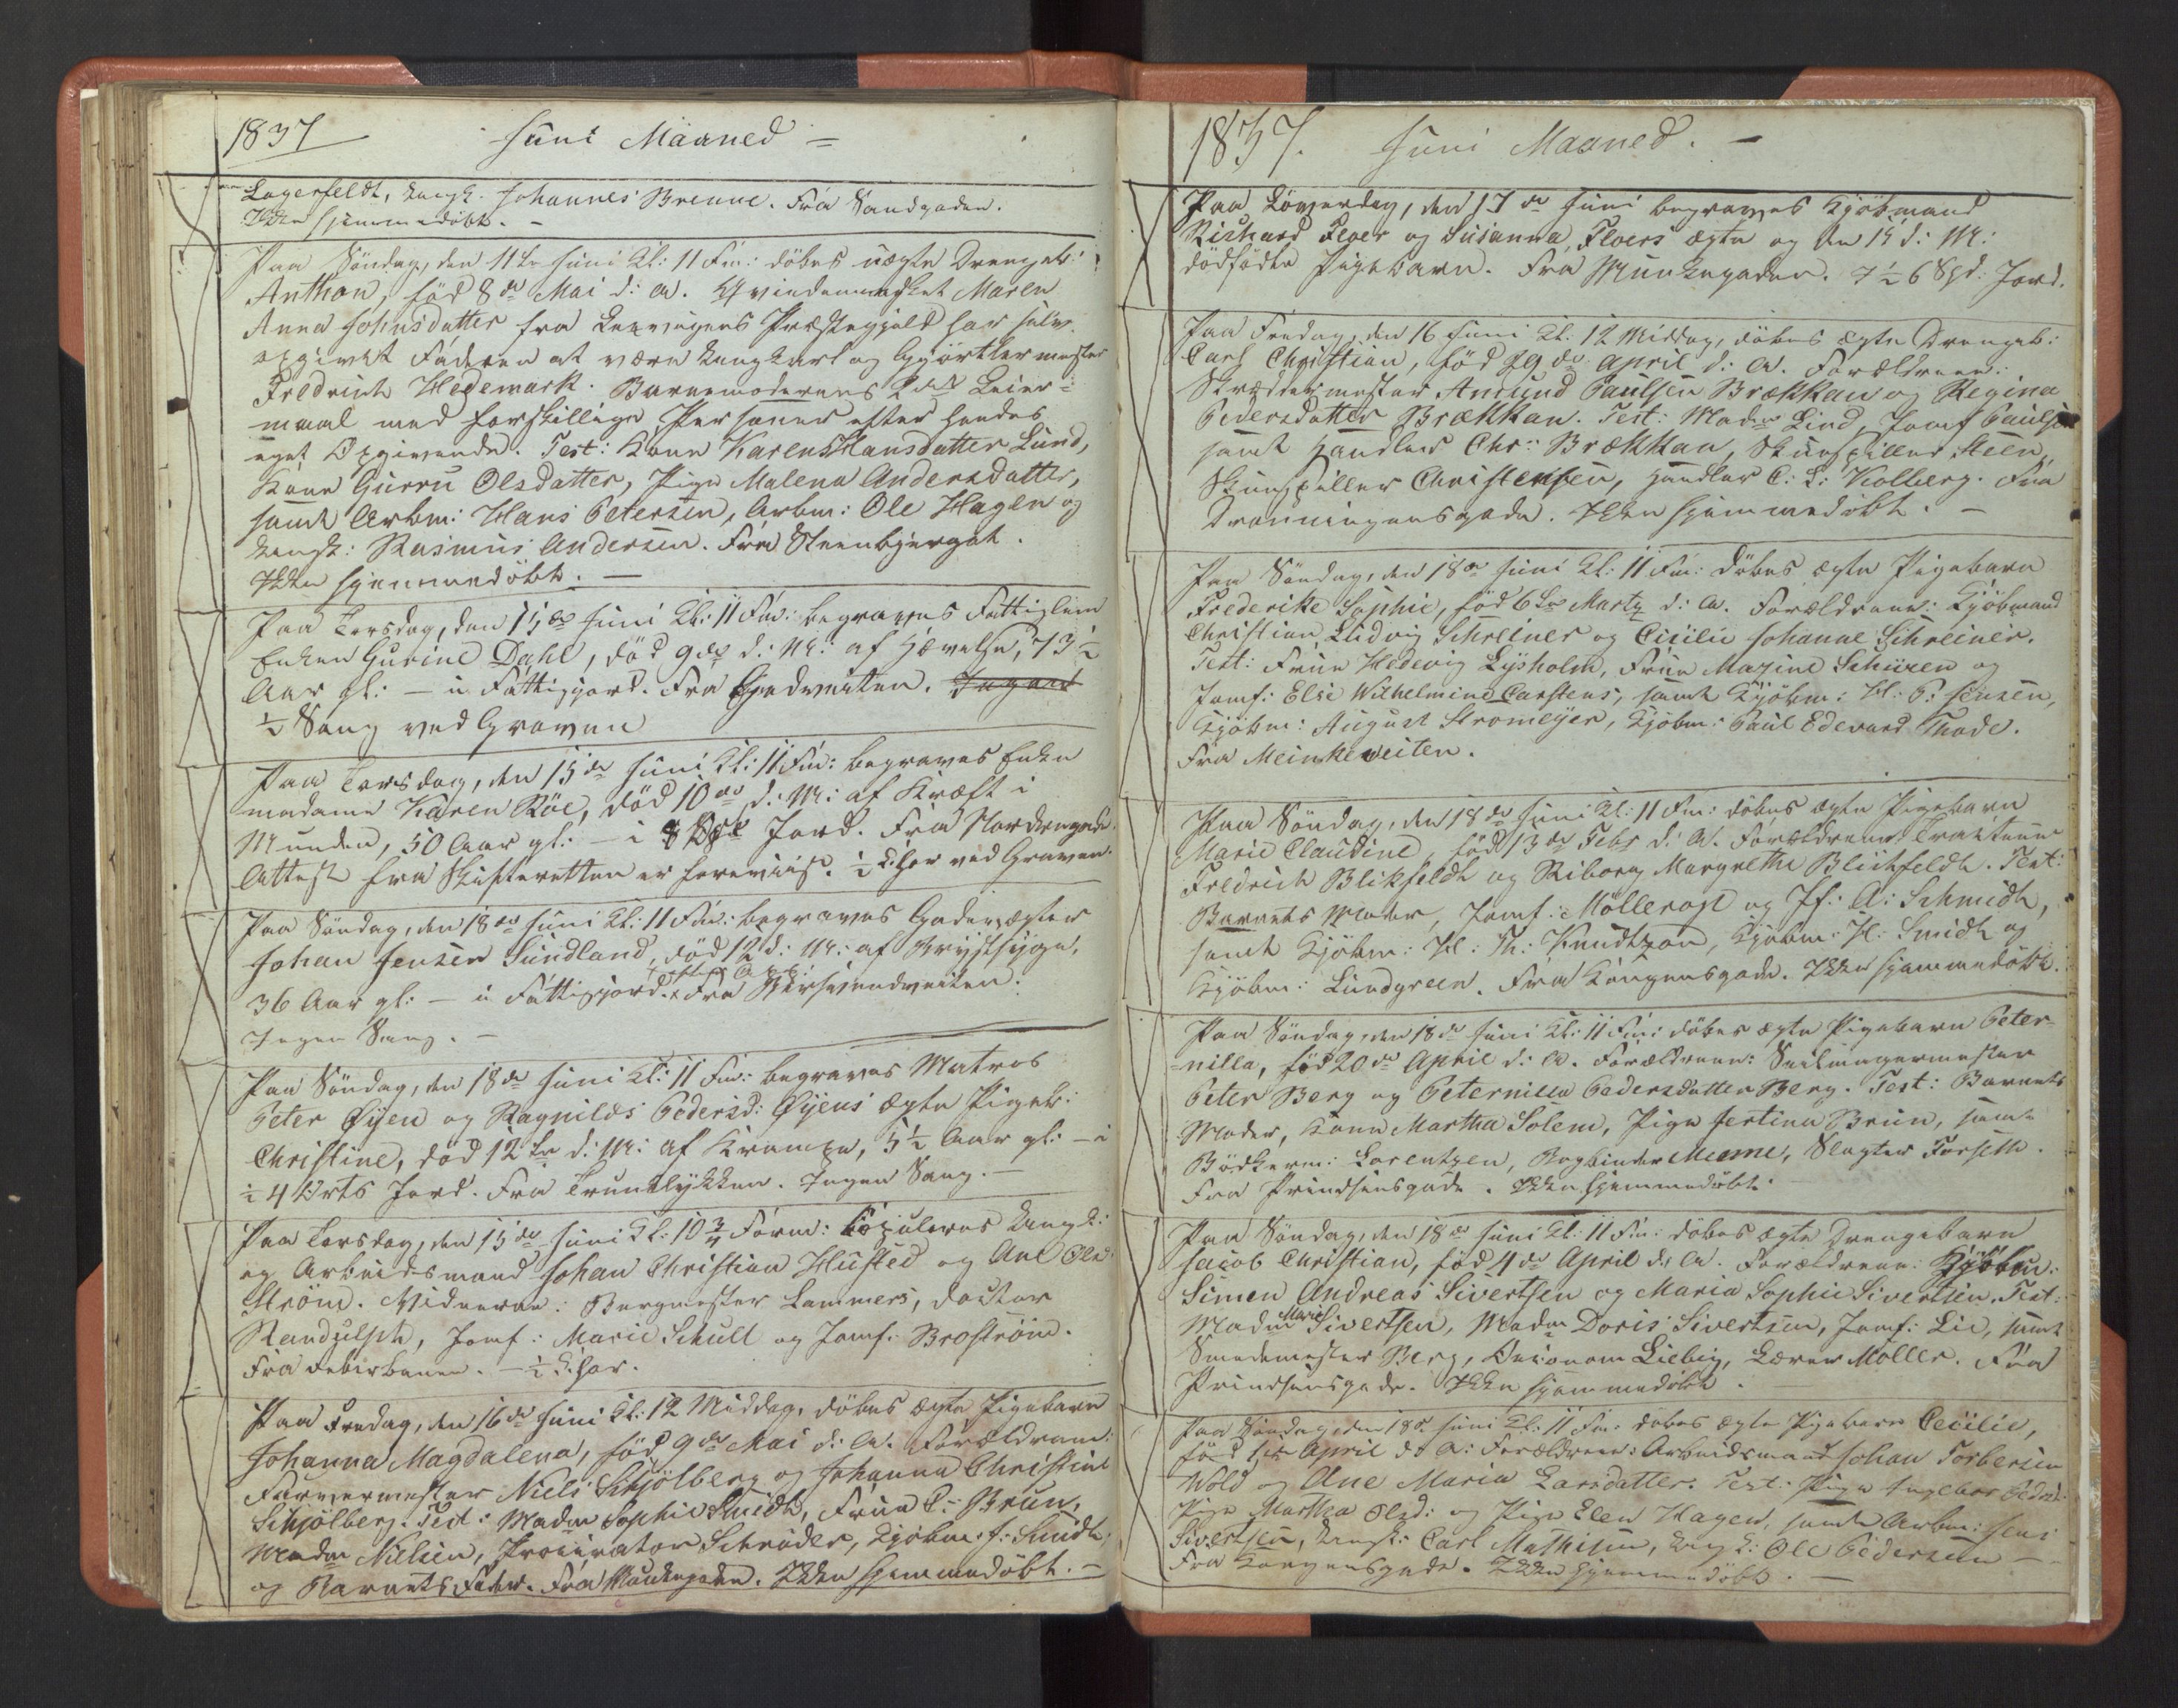 1837 Juni Maaned =
Lagerfeldt, Ungk. Johannes Brenne. Fra Sandgaden.
Ikke hjemmedöbt. -
Paa Söndag, den 11te Juni Kl: 11 Fm: döbes uægte Drengeb:
Anthon, föd 8de Mai d: A. Qvindemennesket Maren
Anna Johnsdatter fra Præstegjeld har selv
opgivet Faderen at være Ungkarl og Gjörtlermester
Fredrich Hedemark. Barnemoderens 2det Leier-
maal med forskillige Personer efter hendes
eget Opgivende. Test: Kone Karen Hansdatter Lund,
Kone Gurru Olsdatter, Pige Malena Andersdatter,
samt Arbm: Hans Petersen, Arbm: Ole Hagen og
Ungk: Rasmus Andersen. Fra Steenbjerget.
Ikke hjemmedöbt. -
Paa Torsdag, den 15de Juni Kl: 11 Fm: begraves Fattiglem
Enken Gurine Dahl, död 9de d: M: af Hævelse, 73½
Aar gl: - i Fattigjord. Fra Ingen
½ Sang ved Graven
Paa Torsdag, den 15de Juni Kl: 11 Fm: begraves Enke
madame Karen Röe, död 10de d: M: af Kræft i
Munden, 50 Aar gl: - i Jord. Fra Nordregade.
Attest fra Skifteretten er foreviist. ½ Chor ved Graven.
Paa Söndag, den 18de Juni Kl: 11 Fm: begraves Gadevægter
Johan Jensen Sundland, död 12 d: M: af Brystsyge,
36 Aar gl: - i Fattigjord. Fra
Ingen Sang. -
Paa Söndag, den 18de Juni Kl: 11 Fm: begraves Matros
Peter Öyen og Ragnilds Pedersd: Öyens ægte Pigeb:
Christine, död 12te d: M: af Krampe, 5½ Aar gl: - i
4 Orts Jord. Fra Ingen Sang. -
Paa Torsdag, den 15de Juni Kl: 10¾ Form: Copuleres Ungk:
og Arbeidsmand Johan Christian Husted og Ane Olsd:
Ström. Vidnerne: Bergmester Lammers, Doctor
Randulph, Jomf: Marie Schult og Jomf: Broström.
Fra - ½ Chor.
Paa Fredag, den 16de Juni Kl: 12 Middag, döbes ægte Pigebarn
Johanna Magdalena, föd 9de Mai d: A. Forældrene:
Farvermester Niels Schjölberg og Johanna Christine
Schjölberg. Test: Madm Sophie Smidt, Frue C: Brun,
Madm Nielsen, Procurator Schröder, Kjöbm: J: Smidt
og Barnets Fader. Fra Munkegaden. Ikke hjemmedöbt. -
1837. Juni Maaned. -
Paa Löverdag, den 17de Juni begraves Kjöbmand
Richard Floer og Susanna Floers ægte og den 15 d: M:
dödfödte Pigebarn. Fra Munkegaden. I 6 Spd: Jord.
Paa Fredag, den 16 Juni Kl: 12 Middag, döbes ægte Drengeb:
Carl Christian, föd 29de April d: A. Forældrene:
Skræddermester Amund Paulsen Brækkan og Regina
Pedersdatter Brækkan. Test: Madm Lind, Jomf Paulsen
samt Handler Chr: Brækkan, Skuespiller Steen,
Skuespiller Christensen, Handler C: L: Kolberg. Fra
Dronningensgade. Ikke hjemmedöbt. -
Paa Söndag, den 18de Juni Kl: 11 Fm: döbes ægte Pigebarn
Frederike Sophie, föd 6te Marts d: A. Forældrene: Kjöbmand
Christian Ludvig Schreiner og Cicilie Johanne Schreiner.
Test: Frue Hedevig Lysholm, Frue Maxine Schüxen og
Jomf: Else Wilhelmine Carstens, samt Kjöbm: H: P: Jensen,
Kjöbm: August Stromeyer, Kjöbm: Paul Edevard Thode.
Fra Meinkeveiten.
Paa Söndag, den 18de Juni Kl: 11 Fm: döbes ægte Pigebarn
Marie Claudine, föd 13de Febr d: A. Forældrene: Tracteur
Fredrich Blikfeldt og Riborg Margrethe Blichfeldt. Test:
Barnets Moder, Jomf: Möllerop og Jf: A: Schmidt,
samt Kjöbm: H: Th: Knudtzon, Kjöbm: H: Smidt og
Kjöbm: Lundgreen. Fra Kongensgade. Ikke hjemmedöbt.
Paa Söndag, den 18de Juni Kl: 11 Fm: döbes ægte Pigebarn Peter-
=nilla, föd 20de April d: A. Forældrene: Seilmagermester
Peter Berg og Peternilla Pedersdatter Berg. Test: Barnets
Moder, Kone Martha Solem, Pige Jertina Brun, samt
Bödkerm: Lorentzen, Bogbinder Meeme, Slagter Forseth.
Fra Prindsensgade. Ikke hjemmedöbt.
Paa Söndag, den 18de Juni Kl: 11 Fm: döbes ægte Drengebarn
Jacob Christian, föd 4de April d: A. Forældrene: Kjöbm:
Simen Andreas Sivertsen og Maria Sophie Sivertsen. Test:
Madm Marie Sivertsen, Madm Doris Sivertsen, Jomf: Lie, samt
Smedemester Berg, Oeconom Liebig, Lærer Möller. Fra
Prindsensgade. Ikke hjemmedöbt.
Paa Söndag, den 18de Juni Kl: 11 Fm: döbes ægte Pigebarn Cecilie,
föd 1ste April d: A: Forældrene: Arbeidsmand Johan Torbersen
Wold og Ane Maria Larsdatter. Test: Pige Ingebor Pedersd:
Pige Marthea Olsd: og Pige Elen Hagen, samt Arbm: Jens
Sivertsen, Ungk: Carl Mathisen, Ungk: Ole Pedersen -
Fra Kongensgade. Ikke hjemmedöbt. -